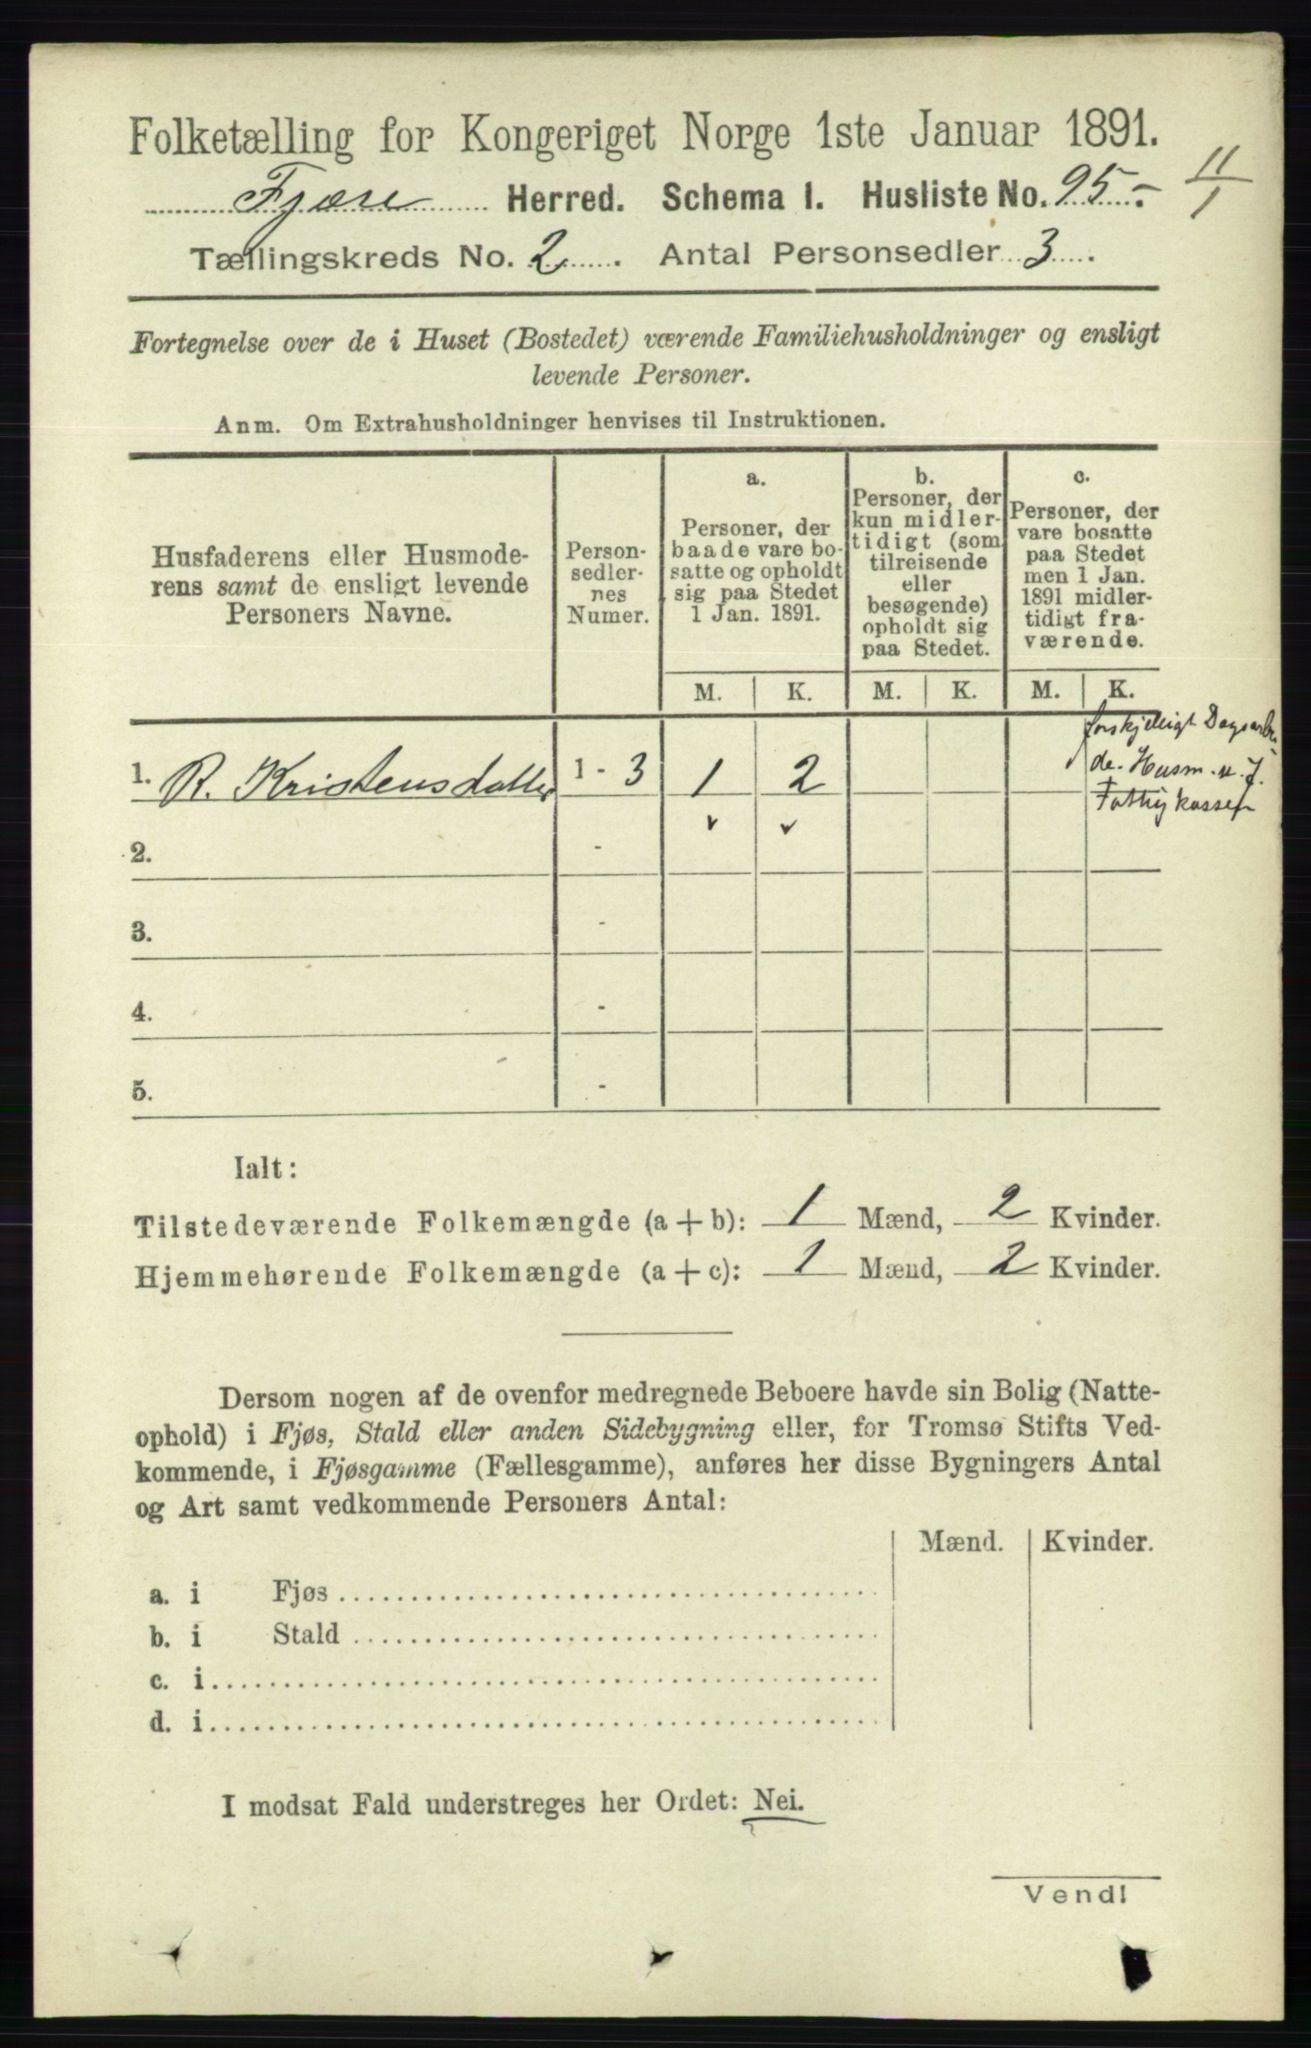 Folketælling for Kongeriget Norge 1ste Januar 1891.
Fjære Herred. Schema I. Husliste No. 95.-
11/1
Tællingskreds No. 2. Antal Personsedler 3.
Fortegnelse over de i Huset (Bostedet) værende Familiehusholdninger og ensligt
levende Personer.
Anm. Om Extrahusholdninger henvises til Instruktionen.
Husfaderens eller Husmode-
rens samt de ensligt levende
Personers Navne.
Person-
sedler-
nes
Numer.
a.
Personer, der
baade vare bo-
satte og opholdt
sig paa Stedet
1 Jan. 1891.
b.
Personer, der
kun midler-
tidigt (som
tilreisende
eller
besøgende)
opholdt sig
paa Stedet.
c.
Personer, der
vare bosatte
paa Stedet
men 1 Jan.
1891 midler-
tidigt fra-
værende.
M. K. M. K. M. K.
1. R. Kristensdatter 1 - 3 1 2
forskjelligt Dagsarbei-
de. Husm. u. J.
Fattigkassen
2. -
3. -
4. -
5. -
Ialt:
Tilstedeværende Folkemængde (a + b): 1 Mænd, 2 Kvinder.
Hjemmehørende Folkemængde (a + c): 1 Mænd, 2 Kvinder.
Dersom nogen af de ovenfor medregnede Beboere havde sin Bolig (Natte-
ophold) i Fjøs, Stald eller anden Sidebygning eller, for Tromsø Stifts Ved-
kommende, i Fjøsgamme (Fællesgamme), anføres her disse Bygningers Antal
og Art samt vedkommende Personers Antal:
Mænd. Kvinder.
a. i Fjøs
b. i Stald
c. i
d. i
I modsat Fald understreges her Ordet: Nei.
Vend!